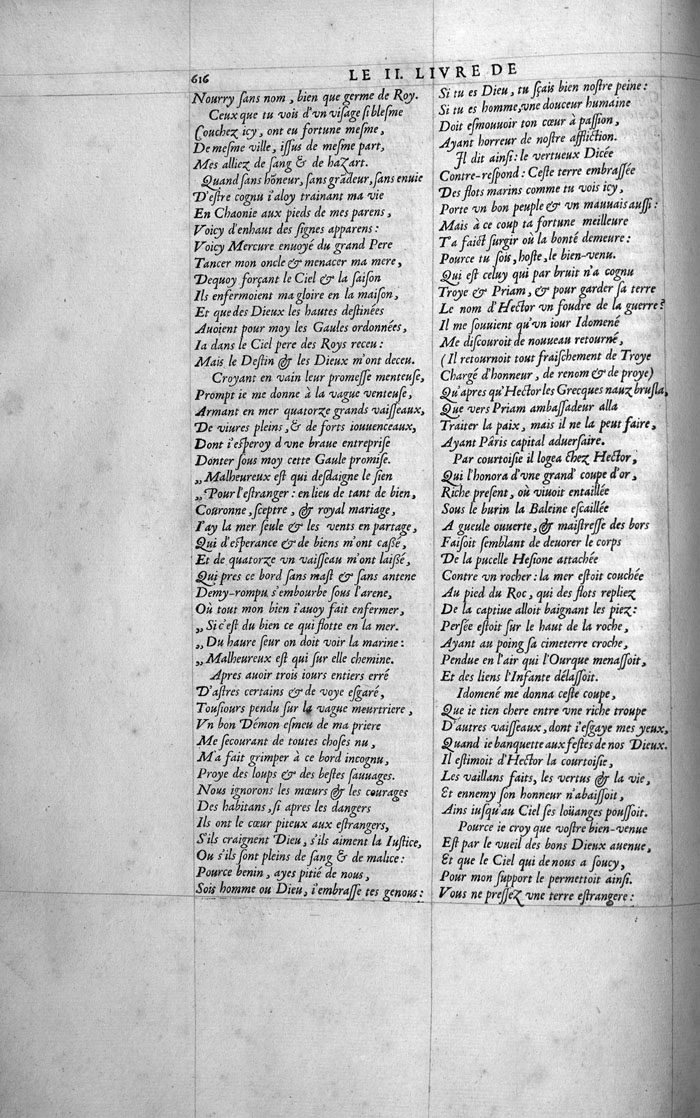 616
LE II. LIVRE DE
Nourry ſans nom, bien que germe de Roy.
Ceux que tu vois d'vn viſage ſi bleſme
Couchez icy, ont eu fortune meſme,
De meſme ville, iſſus de meſme part,
Mes alliez de ſang & de hazart.
Quand ſans hõneur, ſans grãdeur, ſans enuie
D'eſtre cognu i'aloy trainant ma vie
En Chaonie aux pieds de mes parens,
Voicy d'enhaut des ſignes apparens:
Voicy Mercure enuoyé du grand Pere
Tancer mon oncle & menacer ma mere,
Dequoy forçant le Ciel & la ſaiſon
Ils enfermoient ma gloire en la maiſon,
Et que des Dieux les hautes deſtinées
Auoient pour moy les Gaules ordonnées,
Ia dans le Ciel pere des Roys receu:
Mais le Deſtin & les Dieux m'ont deceu.
Croyant en vain leur promeſſe menteuſe,
Prompt ie me donne à la vague venteuſe,
Armant en mer quatorze grands vaiſſeaux,
De viures pleins, & de forts iouuenceaux,
Dont i'eſperoy d'vne braue entrepriſe
Donter ſous moy cette Gaule promiſe.
„Malheureux eſt qui deſdaigne le ſien
„Pour l'eſtranger: en lieu de tant de bien,
Couronne, ſceptre, & royal mariage,
I'ay la mer ſeule & les vents en partage,
Qui d'eſperance & de biens m'ont caßé,
Et de quatorze vn vaiſſeau m'ont laißé,
Qui pres ce bord ſans maſt & ſans antene
Demy-rompu s'embourbe ſous l'arene,
Où tout mon bien i'auoy fait enfermer,
„Si c'eſt du bien ce qui flotte en la mer.
„Du haure ſeur on doit voir la marine:
„Malheureux eſt qui ſur elle chemine.
Apres auoir trois iours entiers erré
D'aſtres certains & de voye eſgaré,
Touſiours pendu ſur la vague meurtriere,
Vn bon Démon eſmeu de ma priere
Me ſecourant de toutes choſes nu,
M'a fait grimper à ce bord incognu,
Proye des loups & des beſtes ſauuages.
Nous ignorons les mœurs & les courages
Des habitans, ſi apres les dangers
Ils ont le cœur piteux aux eſtrangers,
S'ils craignent Dieu, s'ils aiment la Iuſtice,
Ou s'ils ſont pleins de ſang & de malice:
Pource benin, ayes pitié de nous,
Sois homme ou Dieu, i'embraſſe tes genous:
Si tu es Dieu, tu ſçais bien noſtre peine:
Si tu es homme, vne douceur humaine
Doit eſmouuoir ton cœur à paſſion,
Ayant horreur de noſtre affliction.
Il dit ainſi: le vertueux Dicée
Contre-reſpond: Ceſte terre embraſſée
Des flots marins comme tu vois icy,
Porte vn bon peuple & vn mauuais auſſi:
Mais à ce coup ta fortune meilleure
T'a faict ſurgir où la bonté demeure:
Pource tu ſois, hoſte, le bien-venu.
Qui eſt celuy qui par bruit n'a cognu
Troye & Priam, & pour garder ſa terre
Le nom d'Hector vn foudre de la guerre?
Il me ſouuient qu'vn iour Idomené
Me diſcouroit de nouueau retourné,
(Il retournoit tout fraiſchement de Troye
Chargé d'honneur, de renom & de proye)
Qu'apres qu'Hector les Grecques nauz bruſla,
Que vers Priam ambaſſadeur alla
Traiter la paix, mais il ne la peut faire,
Ayant Pâris capital aduerſaire.
Par courtoiſie il logea chez Hector,
Qui l'honora d'vne grand' coupe d'or,
Riche preſent, où viuoit entaillée
Sous le burin la Baleine eſcaillée
A gueule ouuerte, & maiſtreſſe des bors
Faiſoit ſemblant de deuorer le corps
De la pucelle Heſione attachée
Contre vn rocher: la mer eſtoit couchée
Au pied du Roc, qui des flots repliez
De la captiue alloit baignant les piez:
Perſée eſtoit ſur le haut de la roche,
Ayant au poing ſa cimeterre croche,
Pendue en l'air qui l'Ourque menaſſoit,
Et des liens l'Infante délaſſoit.
Idomené me donna ceſte coupe,
Que ie tien chere entre vne riche troupe
D'autres vaiſſeaux, dont i'eſgaye mes yeux,
Quand ie banquette aux feſtes de nos Dieux.
Il eſtimoit d'Hector la courtoiſie,
Les vaillans faits, les vertus & la vie,
Et ennemy ſon honneur n'abaiſſoit,
Ains iuſqu'au Ciel ſes loüanges pouſſoit.
Pource ie croy que voſtre bien-venue
Eſt par le vueil des bons Dieux auenue,
Et que le Ciel qui de nous a ſoucy,
Pour mon ſupport le permettoit ainſi.
Vous ne preſſez vne terre eſtrangere: